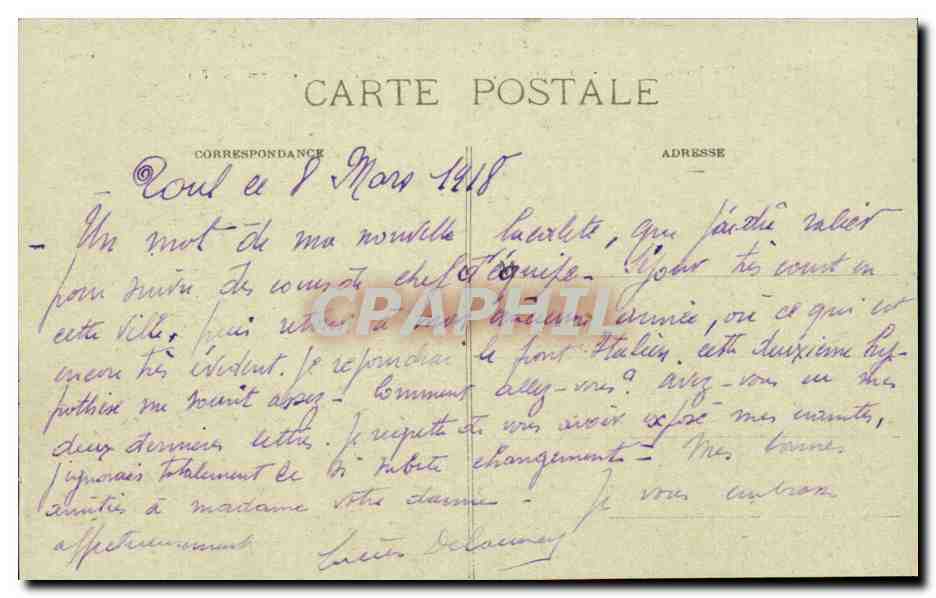 CARTE POSTALE
CORRESPONDANCE
ADRESSE
Toul ce 8 Mars 1918
- Un mot de ma nouvelle localité, que j'ai dû
pour suivre des cours de chef d'équipe - Séjour très court en
cette ville, puis retour à mon ancienne armée, où ce qui est
encore très évident. Je rejoindrai le front Italien. cette deuxième hy-
pothèse me sourit assez - Comment allez-vous? avez-vous eu mes
deux dernières lettres. Je regrette de vous avoir exposé mes
j'ignorais totalement ce si subit changement - Mes bonnes
amitiés à madame votre - Je vous embrasse
affectueusement Delaunay
CPARPHIL